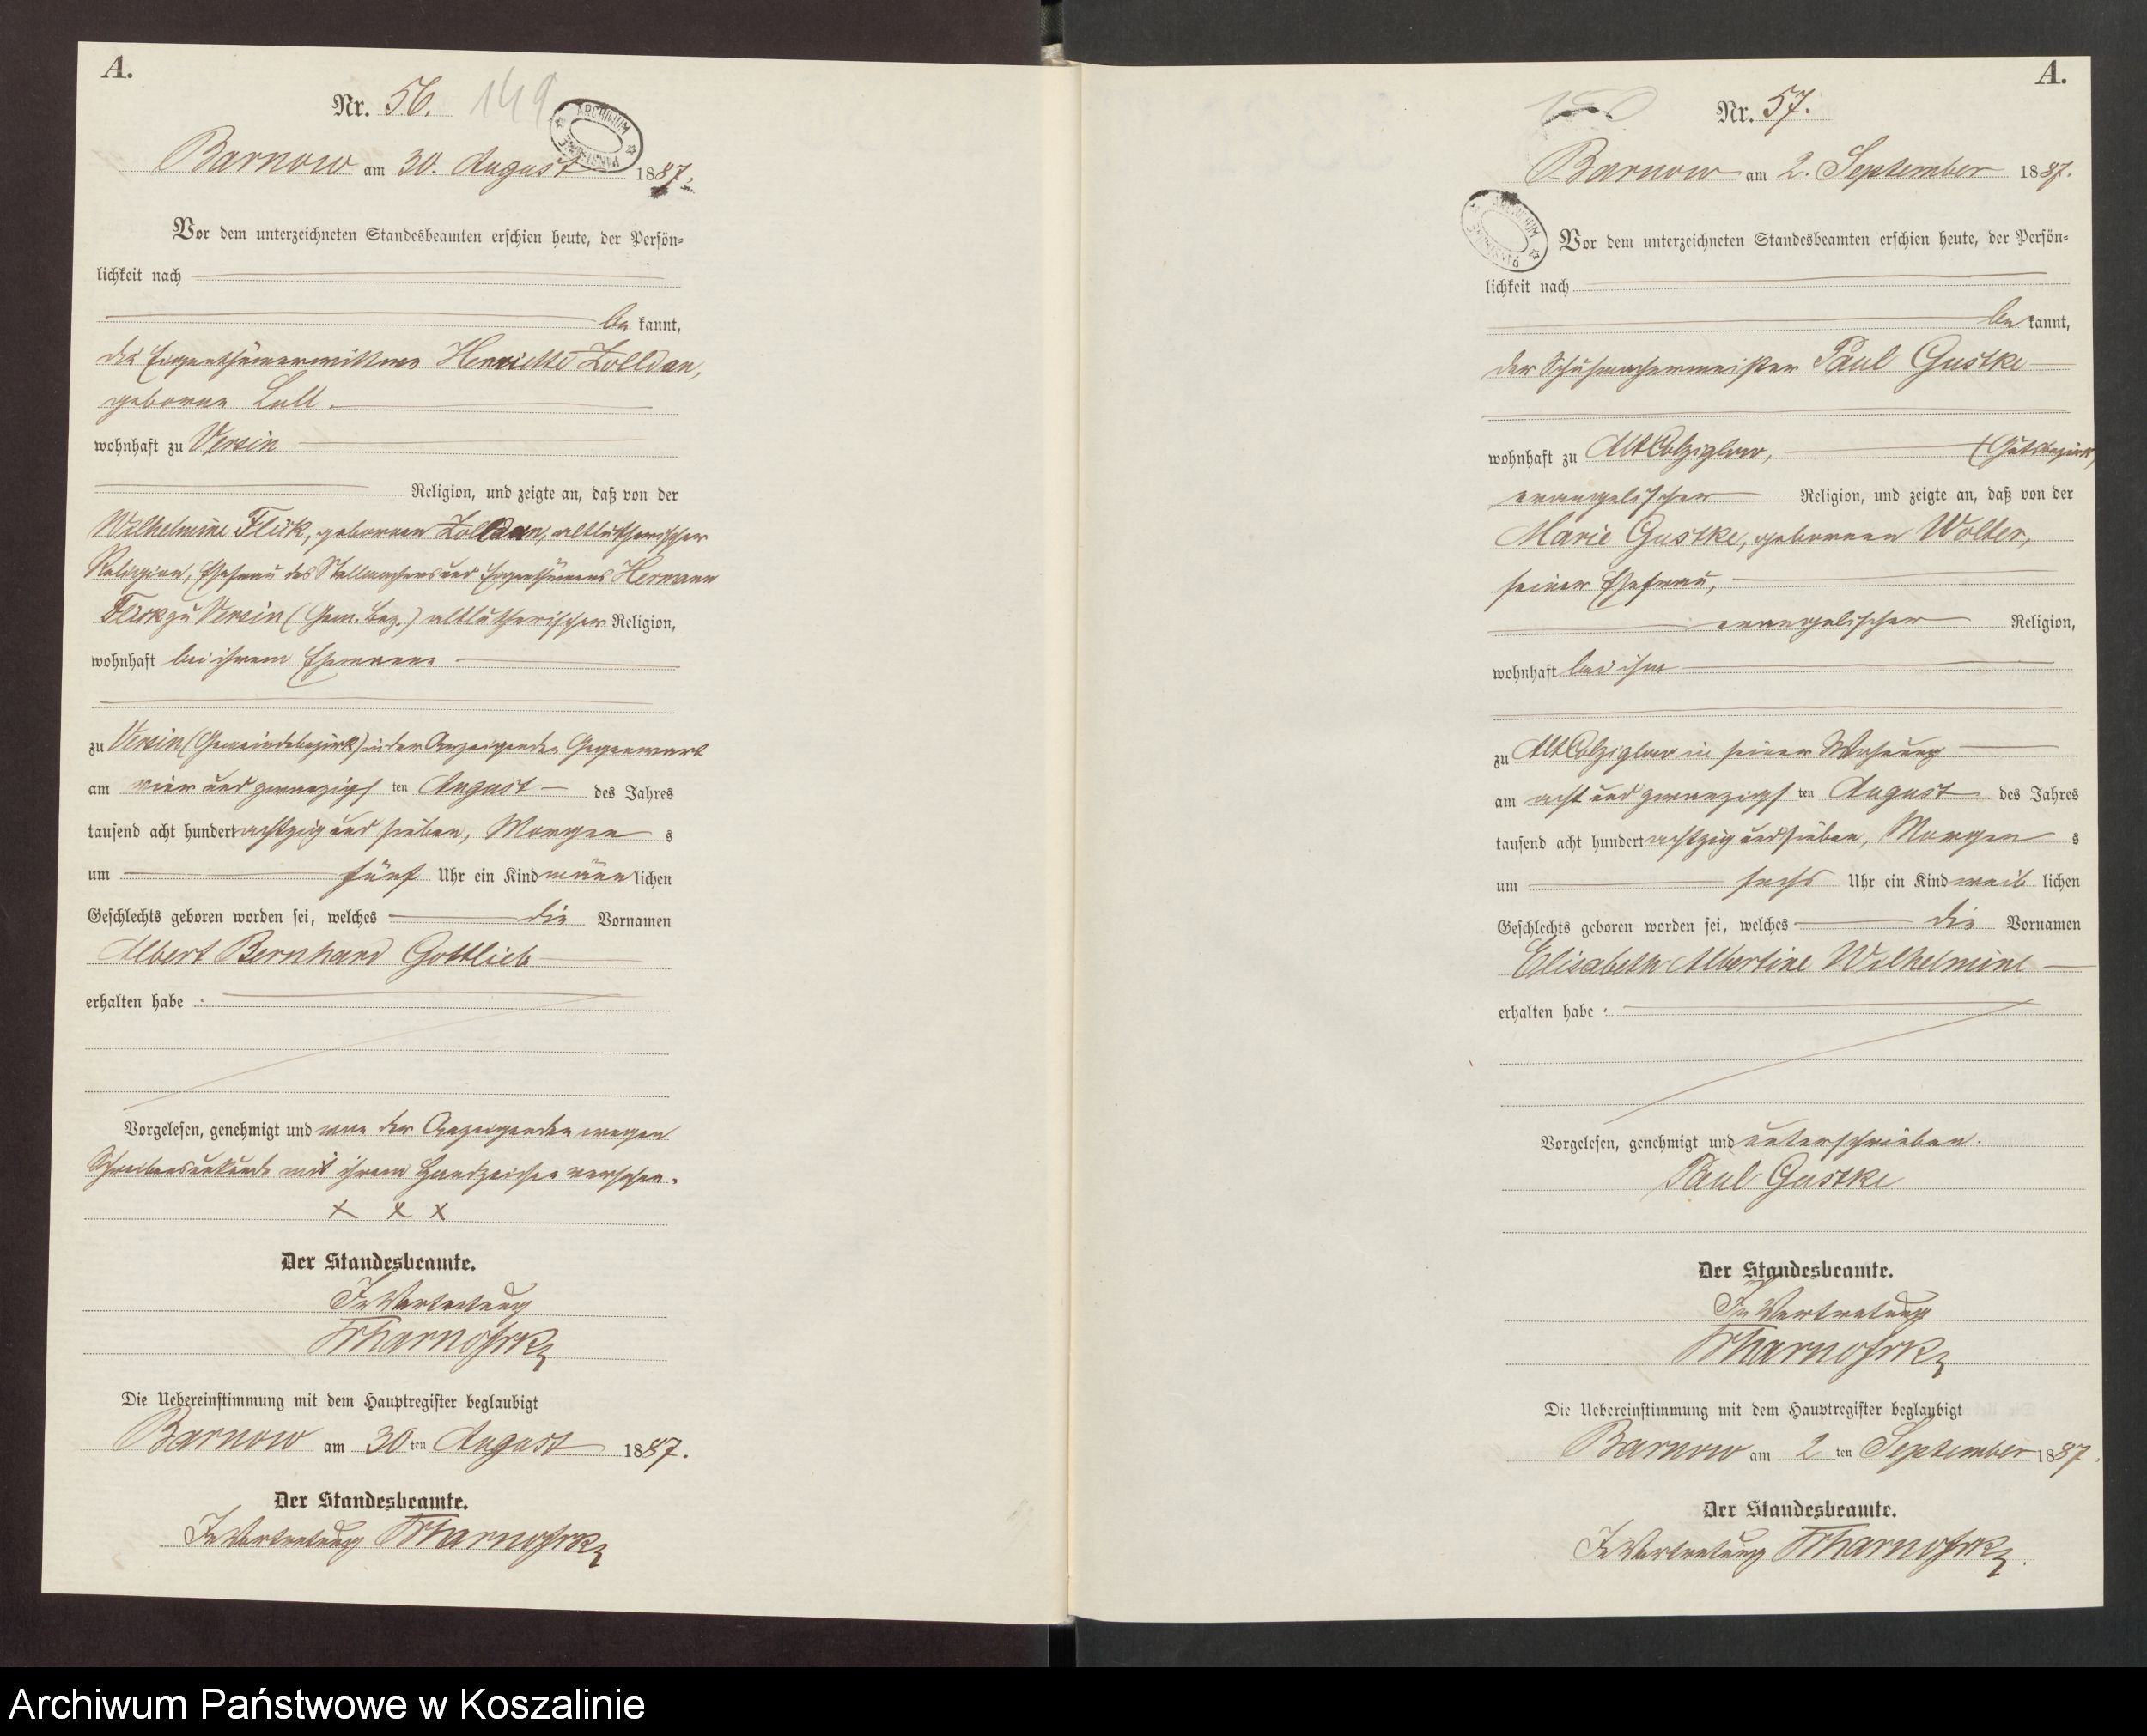 A.
Nr. 56. 149
ARCHIWUM PAŃSTWOWE
Barnow am 30. August 1887.
Vor dem unterzeichneten Standesbeamten erschien heute, der Persön=
lichkeit nach
be kannt,
die Eigenthümerwittwe Henriette Zolldan,
geborne Lall.
wohnhaft zu Versin
Religion, und zeigte an, daß von der
Wilhelmine Flück, gebornen Zolldan, altlutherischer
Religion, Ehefrau des Stellmachers und Eigenthümers Hermann
Flück zu Versin (Gem. Bez.) altlutherischer Religion,
wohnhaft bei ihrem Ehemanne
zu Versin (Gemeindebezirk) in der Anzeigenden Gegenwart
am vier und zwanzigsten August des Jahres
tausend acht hundert achtzig und sieben, Morgen s
um fünf Uhr ein Kind männ lichen
Geschlechts geboren worden sei, welches die Vornamen
Albert Bernhard Gottlieb
erhalten habe.
Vorgelesen, genehmigt und von der Anzeigenden wegen
Schreibensunkunde mit ihrem Handzeichen versehen.
x x x
Der Standesbeamte.
In Vertretung
Die Uebereinstimmung mit dem Hauptregister beglaubigt
Barnow am 30 ten August 1887.
Der Standesbeamte.
In Vertretung
A.
150 Nr. 57.
Barnow am 2. September 1887.
ARCHIWUM PAŃSTWOWE
Vor dem unterzeichneten Standesbeamten erschien heute, der Persön=
lichkeit nach
be kannt,
der Schuhmachermeister Paul Gustke
wohnhaft zu Alt Colziglow, (Gutsbezirk)
evangelischer Religion, und zeigte an, daß von der
Marie Gustke, gebornen Wolter,
seiner Ehefrau,
evangelischer Religion,
wohnhaft bei ihm
zu Alt Colziglow in seiner Wohnung
am acht und zwanzigsten August des Jahres
tausend acht hundert achtzig und sieben, Morgen s
um sechs Uhr ein Kind weib lichen
Geschlechts geboren worden sei, welches die Vornamen
Elisabeth Albertine Wilhelmine
erhalten habe.
Vorgelesen, genehmigt und unterschrieben.
Paul Gustke
Der Standesbeamte.
In Vertretung
Die Uebereinstimmung mit dem Hauptregister beglaubigt
Barnow am 2 ten September 1887.
Der Standesbeamte.
In Vertretung
Archiwum Państwowe w Koszalinie